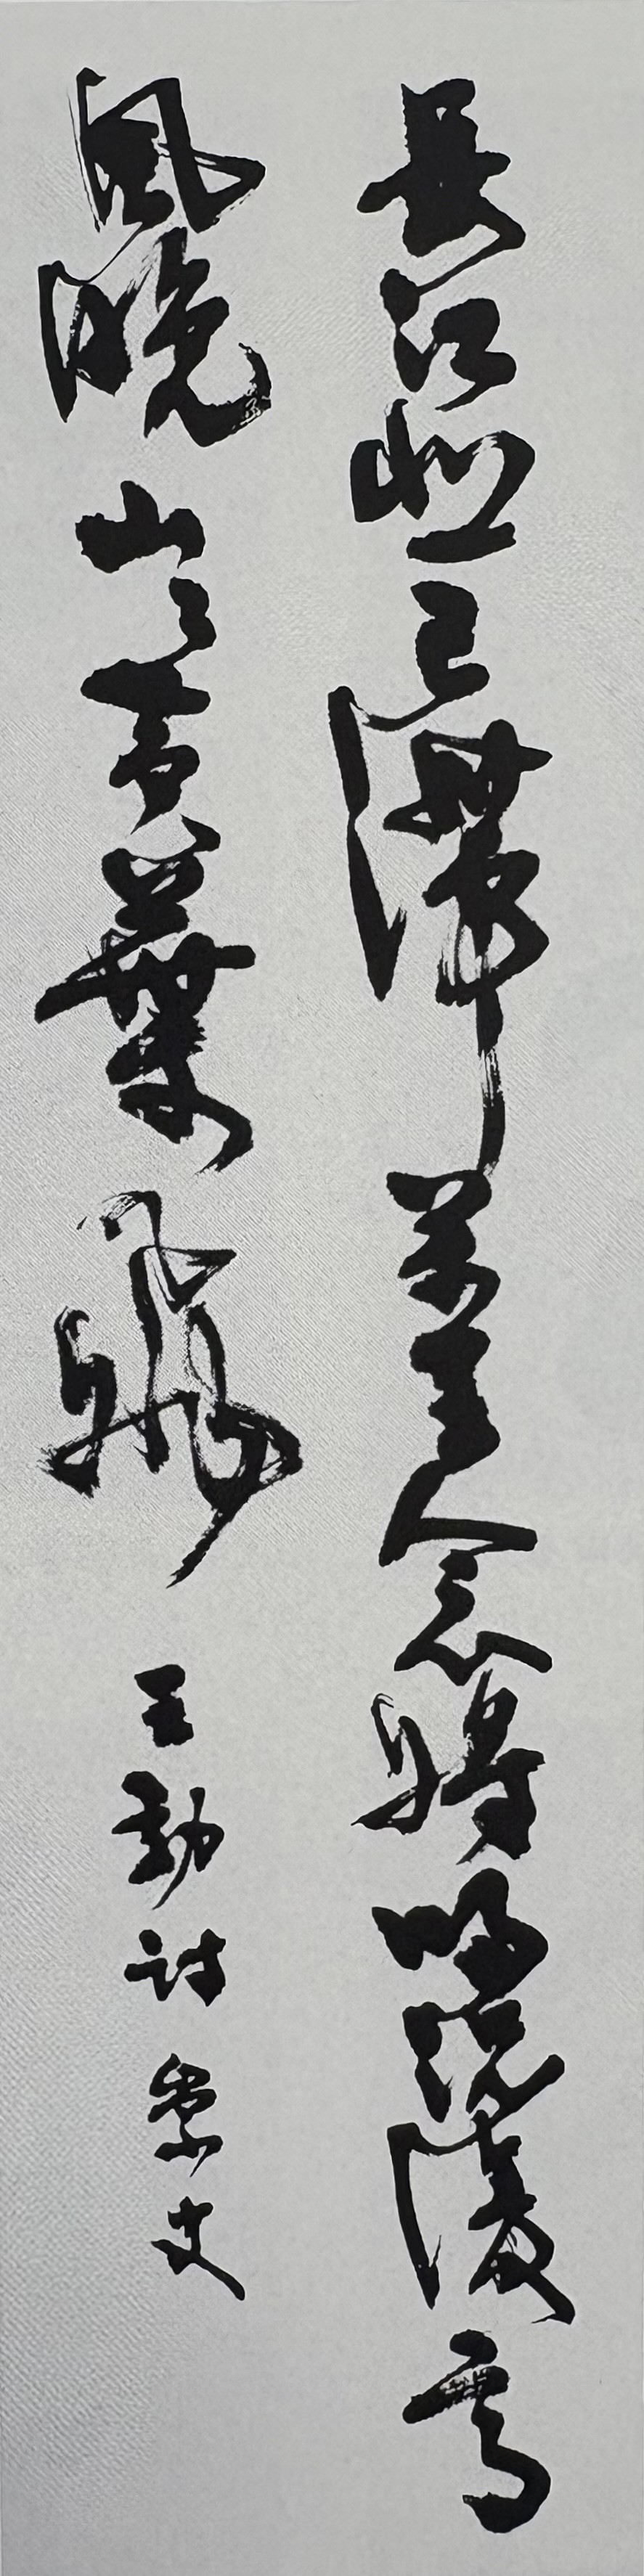 長江悲已滯萬里念將歸況屬高
風晚山々黃葉飛
王勃詩